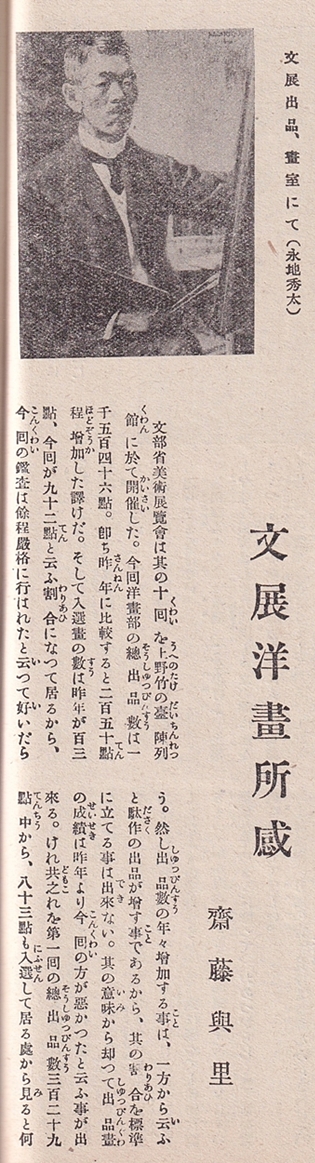 文展出品、畫室にて(永地秀太)
文展洋畫所感
齋藤與里
文部省美術展覽會は其の十回を上野竹の臺陳列
館に於て開催した。今回洋畫部の總出品數は一
千五百四十六點。卽ち昨年に比較すると二百五十點
程增加した譯けだ。そして入選畫の數は昨年が百三
點、今回が九十二點と云ふ割合になつて居るから、
今回の鑑査は餘程嚴格に行はれたと云つて好いだら
う。然し出品數の年々增加する事は、一方から云ふ
と駄作の出品が增す事であるから、其の割合を標準
に立てる事は出來ない。其の意味から却つて出品畫
の成績は昨年より今回の方が惡かつたと云ふ事が出
來る。けれ共之れを第一回の總出品數三百二十九
點中から、八十三點も入選して居る處から見ると何